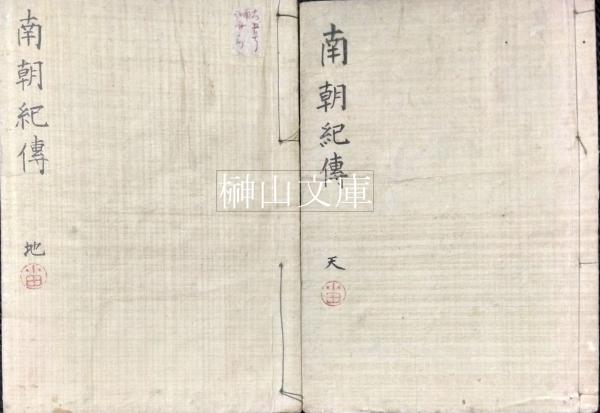 南朝紀傳
天
南朝紀傳
地
榊山文庫